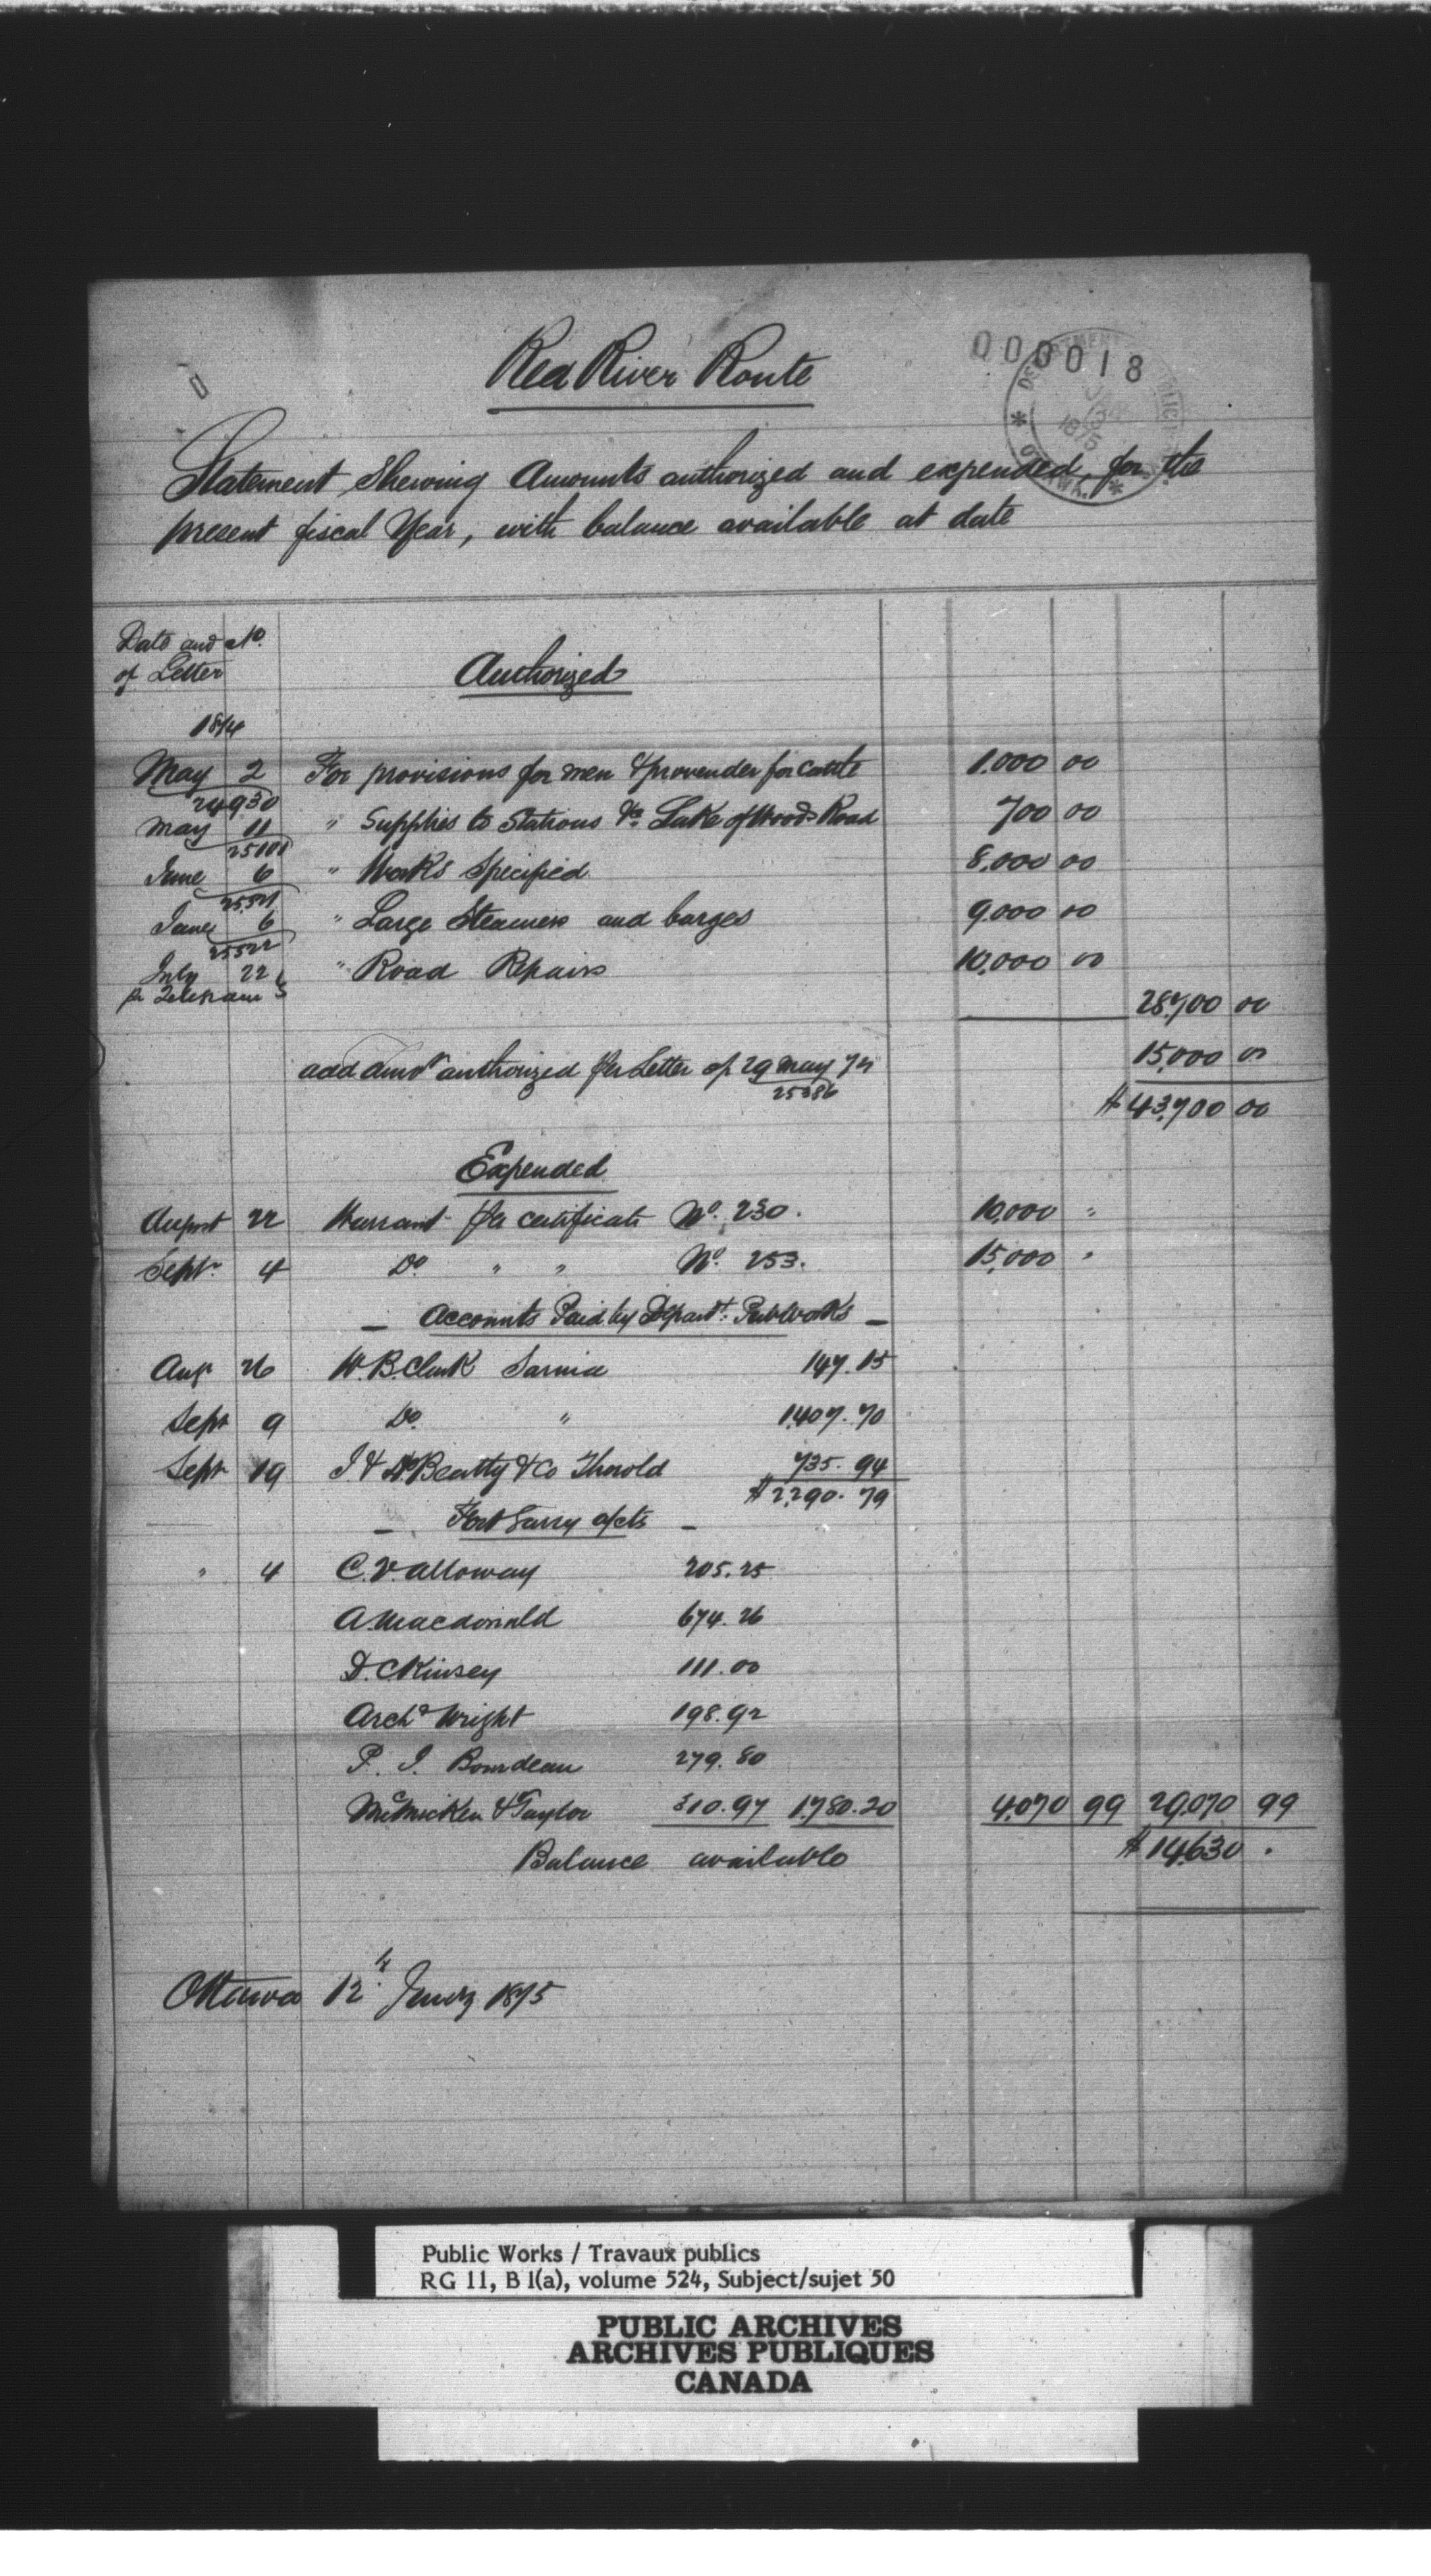 000018
Red River Route
Statement Shewing Amounts authorized and expended for the
present fiscal Year, with balance available at date
Date and No.
of Letter
Authorized
1874
May 2 For provisions for men & provender for cattle 1.000 00
24930
May 11 " Supplies to Stations &c Lake of Woods Road 700 00
25101
June 6 " Works Specified 8.000 00
25521
June 6 " Large Steamers and barges 9.000 00
25522
July 22 " Road Repairs 10.000 00
pr Telegram
28,700 00
add amt authorized per Letter of 29 May 74 15,000 00
25386
$ 43,700 00
Expended
August 22 Warrant per certificate No. 230. 10,000 "
Septr. 4 Do. " " No. 253. 15,000 "
— Accounts Paid by Depart: Pub Works —
Aug 26 W. B. Clark Sarnia 147.15
Sept 9 Do. " 1,407.70
Sept 19 J & Beatty & Co Thorold 735.94
$ 2,290.79
— Fort Garry a/cts —
" 4 C. V. Alloway 205.25
A. Macdonald 674.26
D. C. Kinsey 111.00
Archd Wright 198.92
P. J. Bourdeau 279.80
McMicken & Taylor 310.97 1,780.20 4,070 99 29,070 99
Balance available $ 14,630 .
Ottawa 12th Jany 1875
Public Works / Travaux publics
RG 11, B 1(a), volume 524, Subject/sujet 50
PUBLIC ARCHIVES
ARCHIVES PUBLIQUES
CANADA